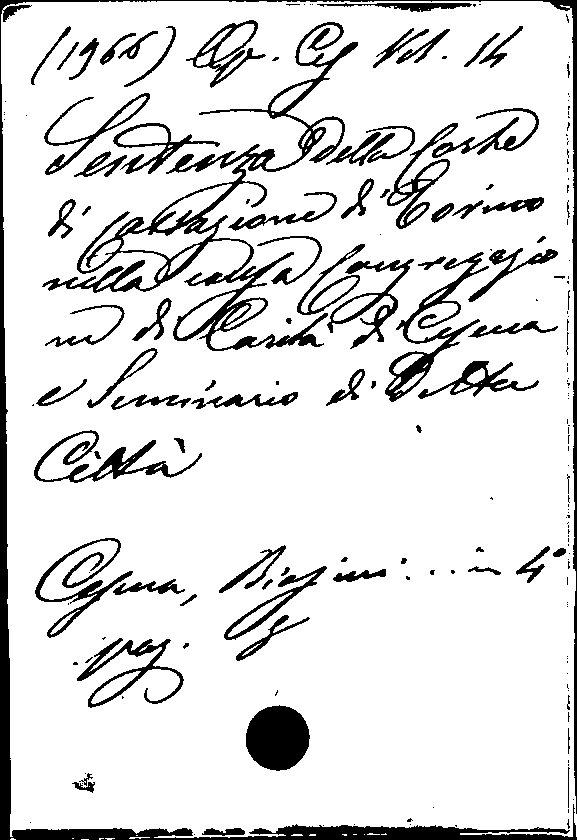 (1966) Op. Ces Vol. 14
Sentenza della Corte
di Cassazione di Torino
nella causa Congregazio
ne di Carità di Cesena
e Seminario di Detta
Città
Cesena, Biasini ... in 4°
pag. 8